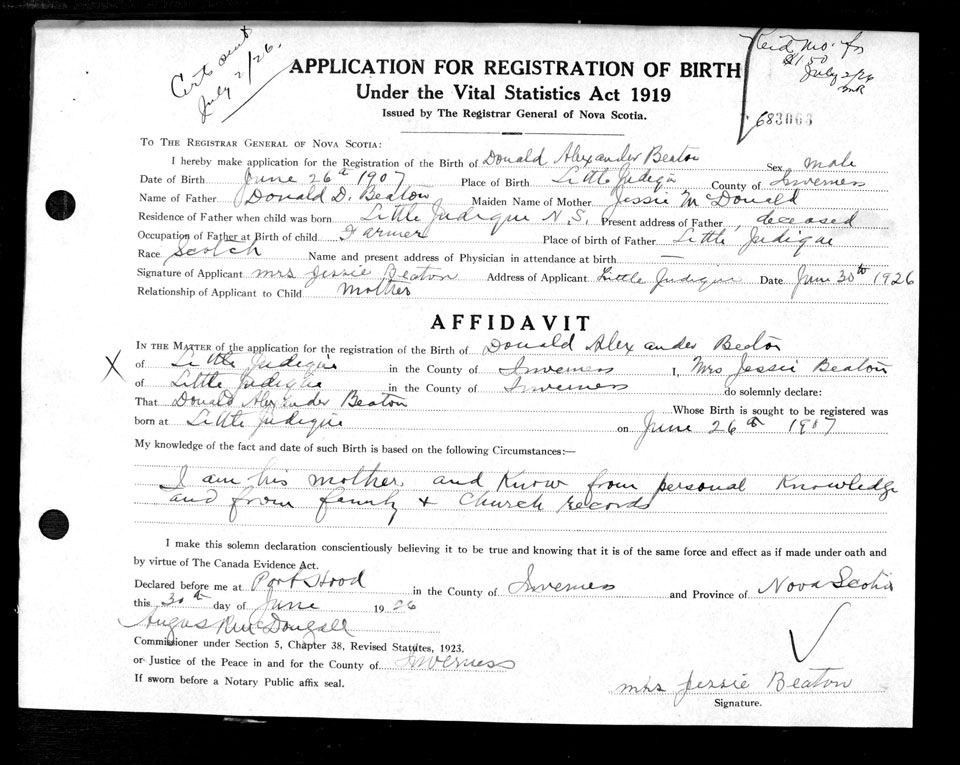 Cert sent
July 2/26.
Rec'd Mo. for
$1.50
July 2/26
683063
APPLICATION FOR REGISTRATION OF BIRTH
Under the Vital Statistics Act 1919
Issued by The Registrar General of Nova Scotia.
TO THE REGISTRAR GENERAL OF NOVA SCOTIA:
I hereby make application for the Registration of the Birth of Donald Alexander Beaton Sex male
Date of Birth June 26th 1907 Place of Birth Little Judique County of Inverness
Name of Father Donald D. Beaton Maiden Name of Mother Jessie McDonald
Residence of Father when child was born Little Judique N.S. Present address of Father deceased
Occupation of Father at Birth of child Farmer Place of birth of Father Little Judique
Race Scotch Name and present address of Physician in attendance at birth —
Signature of Applicant mrs Jessie Beaton Address of Applicant Little Judique Date June 30th 1926
Relationship of Applicant to Child mother
AFFIDAVIT
IN THE MATTER of the application for the registration of the Birth of Donald Alexander Beaton
X of Little Judique in the County of Inverness I, Mrs Jessie Beaton
of Little Judique in the County of Inverness do solemnly declare:
That Donald Alexander Beaton Whose Birth is sought to be registered was
born at Little Judique on June 26th 1907
My knowledge of the fact and date of such Birth is based on the following Circumstances:—
I am his mother and Know from personal Knowledge
and from family & Church records
I make this solemn declaration conscientiously believing it to be true and knowing that it is of the same force and effect as if made under oath and
by virtue of The Canada Evidence Act.
Declared before me at Port Hood in the County of Inverness and Province of Nova Scotia
this 30th day of June 1926
Angus MacDougall
Commissioner under Section 5, Chapter 38, Revised Statutes, 1923.
or Justice of the Peace in and for the County of Inverness
If sworn before a Notary Public affix seal.
mrs Jessie Beaton
Signature.